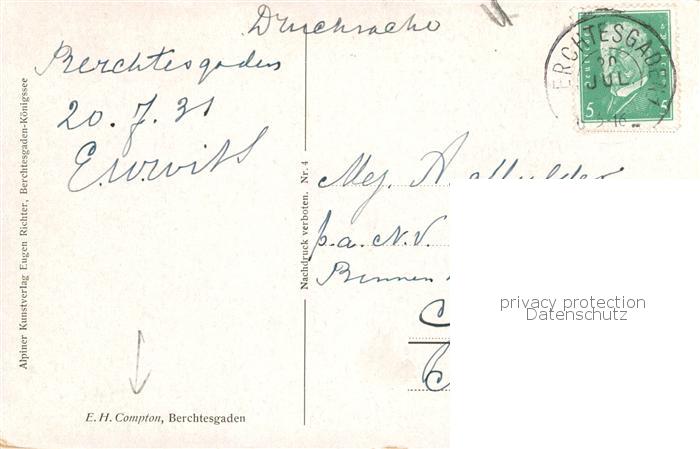 Drucksache
Berchtesgaden
20.7.31
Alpiner Kunstverlag Eugen Richter, Berchtesgaden-Königssee
E. H. Compton, Berchtesgaden
Nachdruck verboten. Nr. 4
ERCHTESGADEN
20
JUL
5 5
Mej. A. Mulder
p.a. N.V.
Binnen
privacy protection
Datenschutz